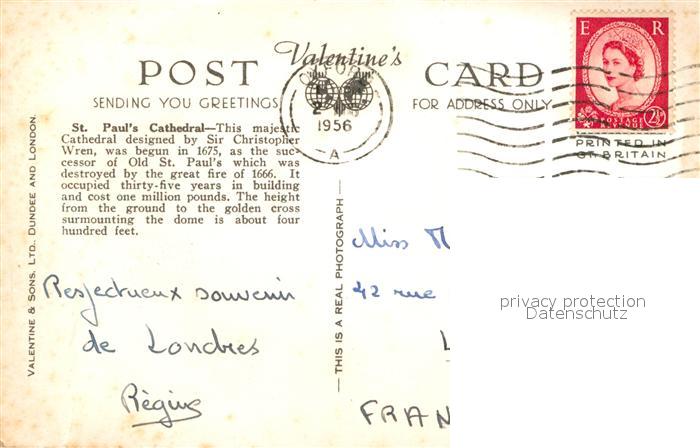 Valentine's
POST CARD
SENDING YOU GREETINGS
FOR ADDRESS ONLY
E R
POSTAGE
REVENUE
2½
1956
A
PRINTED IN
GT. BRITAIN
St. Paul's Cathedral—This majestic
Cathedral designed by Sir Christopher
Wren, was begun in 1675, as the suc-
cessor of Old St. Paul's which was
destroyed by the great fire of 1666. It
occupied thirty-five years in building
and cost one million pounds. The height
from the ground to the golden cross
surmounting the dome is about four
hundred feet.
VALENTINE & SONS. LTD., DUNDEE AND LONDON.
—THIS IS A REAL PHOTOGRAPH—
Respectueux souvenir
de Londres
Régine
Miss
42 rue
FRAN
privacy protection
Datenschutz